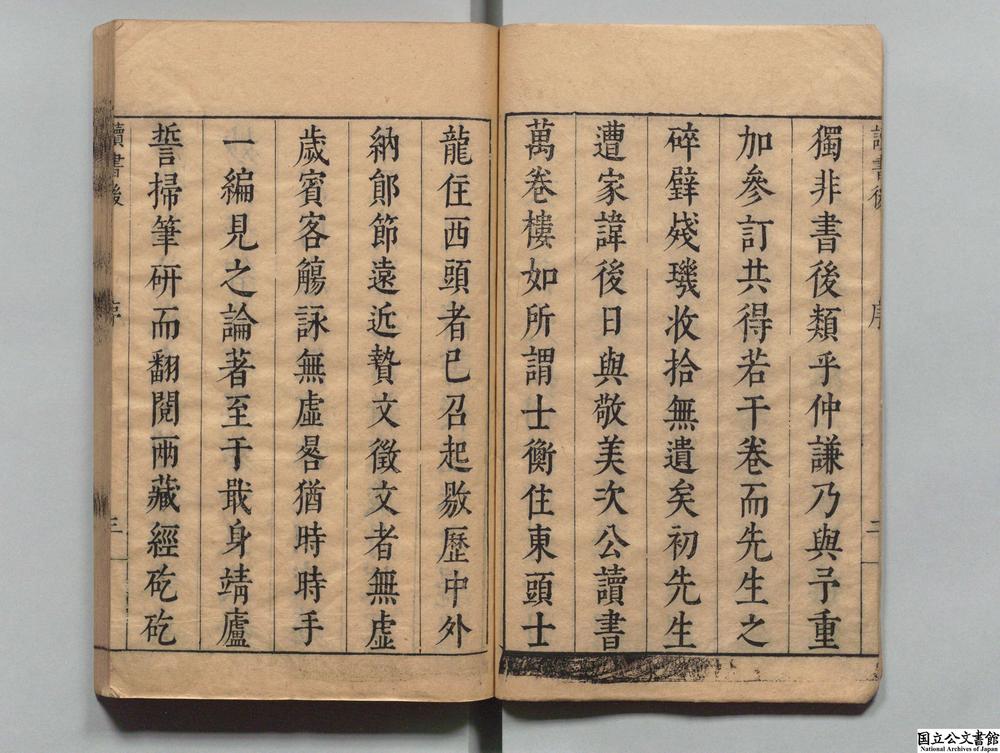 讀書後 序 二
獨非書後類乎仲謙乃與予重
加參訂共得若干卷而先生之
碎璧殘璣收拾無遺矣初先生
遭家諱後日與敬美次公讀書
萬卷樓如所謂士衡住東頭士
龍住西頭者已召起敭歷中外
納郎節遠近贄文徵文者無虛
歲賓客觴詠無虛晷猶時時手
一編見之論著至于戢身靖廬
誓掃筆研而翻閱兩藏經矻矻
讀書後 序 三
国立公文書館
National Archives of Japan